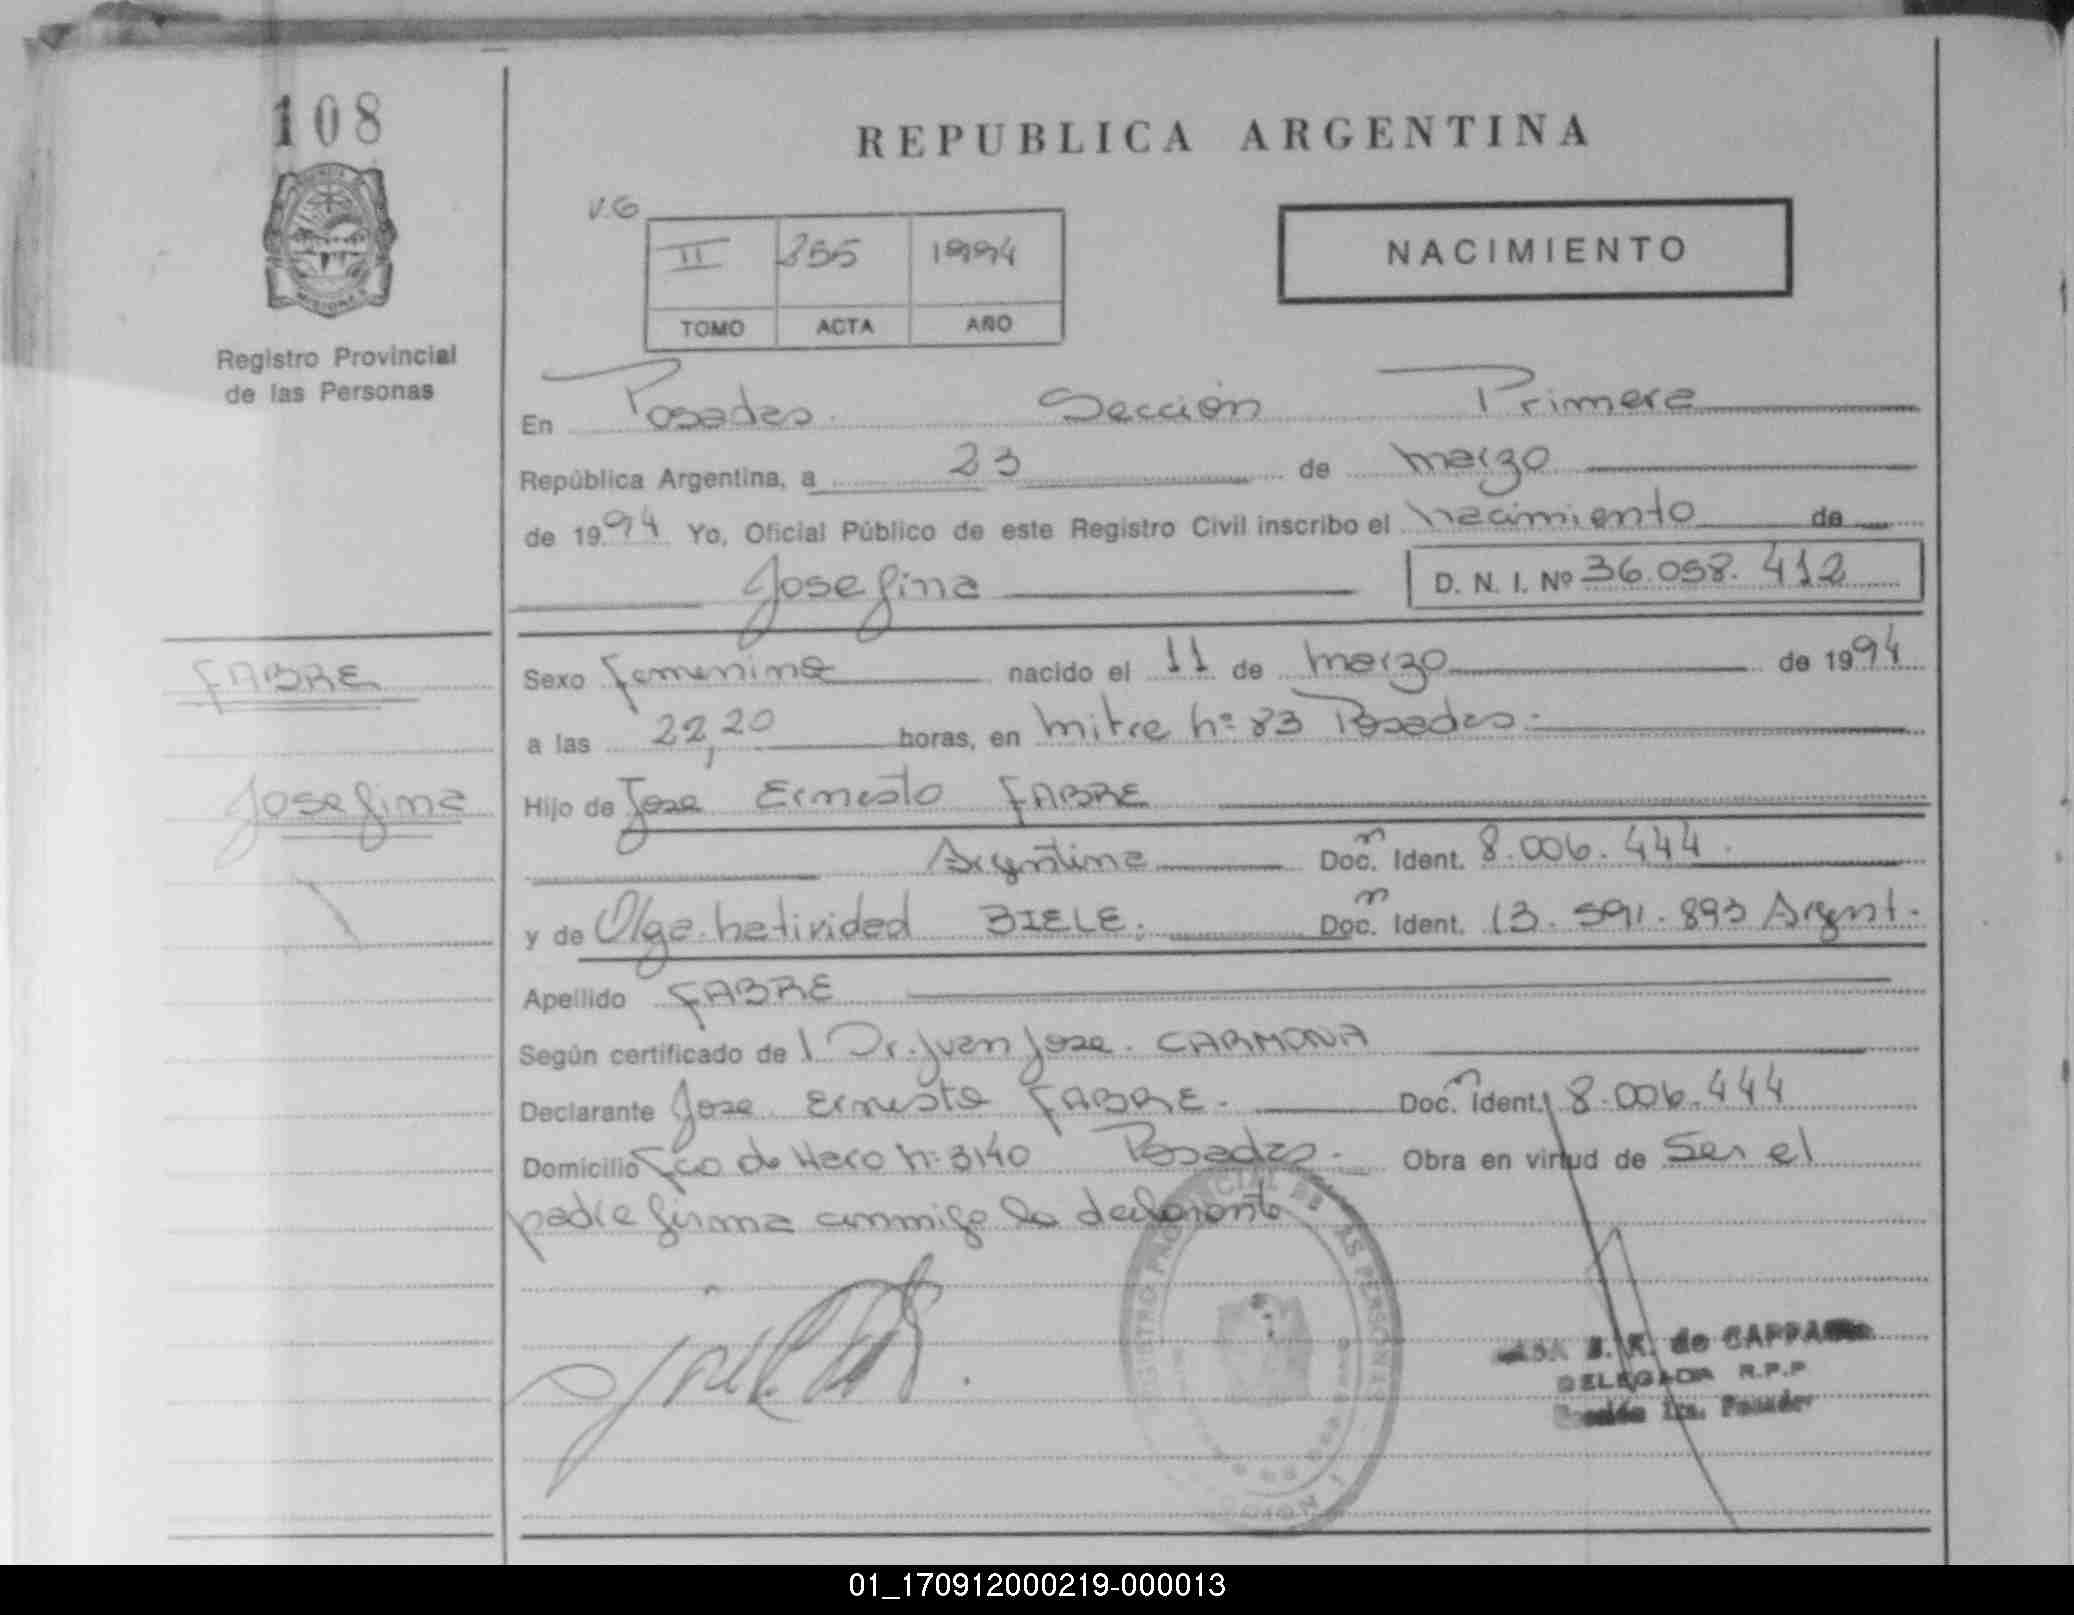 108
REPUBLICA ARGENTINA
MISIONES
Registro Provincial
de las Personas
V.G
II 255 1994
TOMO ACTA AÑO
NACIMIENTO
En Posadas. Sección Primera
República Argentina, a 23 de marzo
de 1994 Yo, Oficial Público de este Registro Civil inscribo el nacimiento de
Josefina D. N. I. Nº 36.058.412
FABRE
Sexo femenina nacido el 11 de marzo de 1994
a las 22,20 horas, en mitre nº 83 Posadas.
Josefina
Hijo de Jose Ernesto FABRE
Argentina Doc. Ident. 8.006.444.
y de Olga natividad BIELE. Doc. Ident. 13.591.893 Argent.
Apellido FABRE
Según certificado de l Dr. Juan Jose. CARMONA
Declarante Jose Ernesto FABRE. Doc. Ident. 8.006.444
Domicilio Fco de Haro n: 3140 Posadas. Obra en virtud de Ser el
padre firma conmigo la declarante
REGISTRO PROVINCIAL DE LAS PERSONAS
S. K. de
DELEGADA R.P.P
Sección 1ra. Posadas
01_170912000219-000013